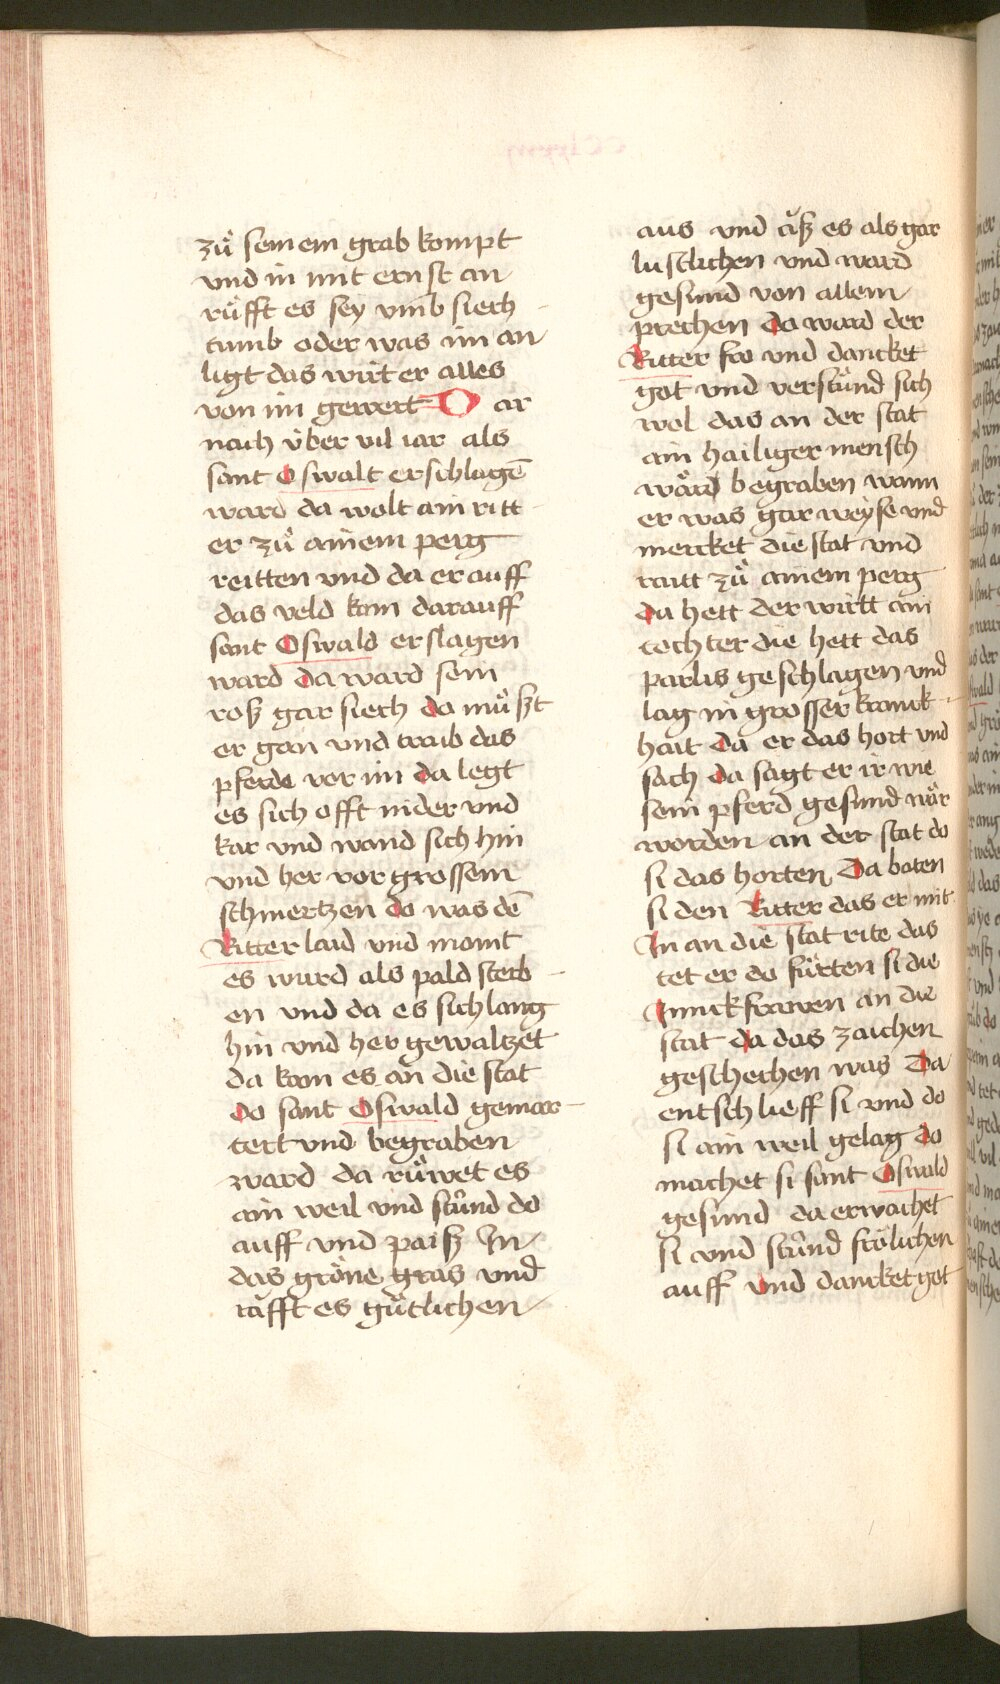 zů seinem grab kompt
vnd in mit ernst an
rüfft es sey vmb siech
tumb oder was im an
ligt das wirt er alles
von im gewert D ar
nach über vil iar als
sant Oswalt erschlagē
ward da wolt ain ritt
er zů ainem perg
reitten vnd da er auff
das veld kom darauff
sant Oswald erslagen
ward da ward sein
roß gar siech do můßt
er gan vnd traib das
pferde vor im da legt
es sich offt nider vnd
kar vnd wand sich hin
vnd her vor grossem
schmertzen do was dē
Ritter laid vnd momt
es wurd als pald sterb
en vnd da es sich lang
hin vnd her gewaltzet
da kom es an die stat
do sant Oswald gemar
tert vnd begraben
ward da růwet es
ain weil vnd stůnd do
auff vnd paiß In
das gröne gras vnd
räfft es gütlichen
aus vnd äß es als gar
lustlichen vnd ward
gesund von allem
prechen da ward der
Ritter fro vnd dancket
got vnd verstůnd sich
wol das an der stat
ain hailiger mensch
wärd begraben wann
er was gar weyse vnd
mercket die stat vnd
raitt zů ainem perg
da hett der wirtt ain
tochter die hett das
parlis geschlagen vnd
lag in grosser kranck
hait da er das hort vnd
sach da sagt er ir wie
sein pferd gesund wär
worden an der stat do
si das horten Da baten
si den Ritter das er mit
In an die stat rite das
tet er do fürten si die
Junckfrawen an die
stat da das zaichen
geschechen was Da
entschlieff si vnd do
si ain weil gelag do
machet si sant Oswald
gesund da erwachet
si vnd stůnd frölichen
auff vnd dancket got